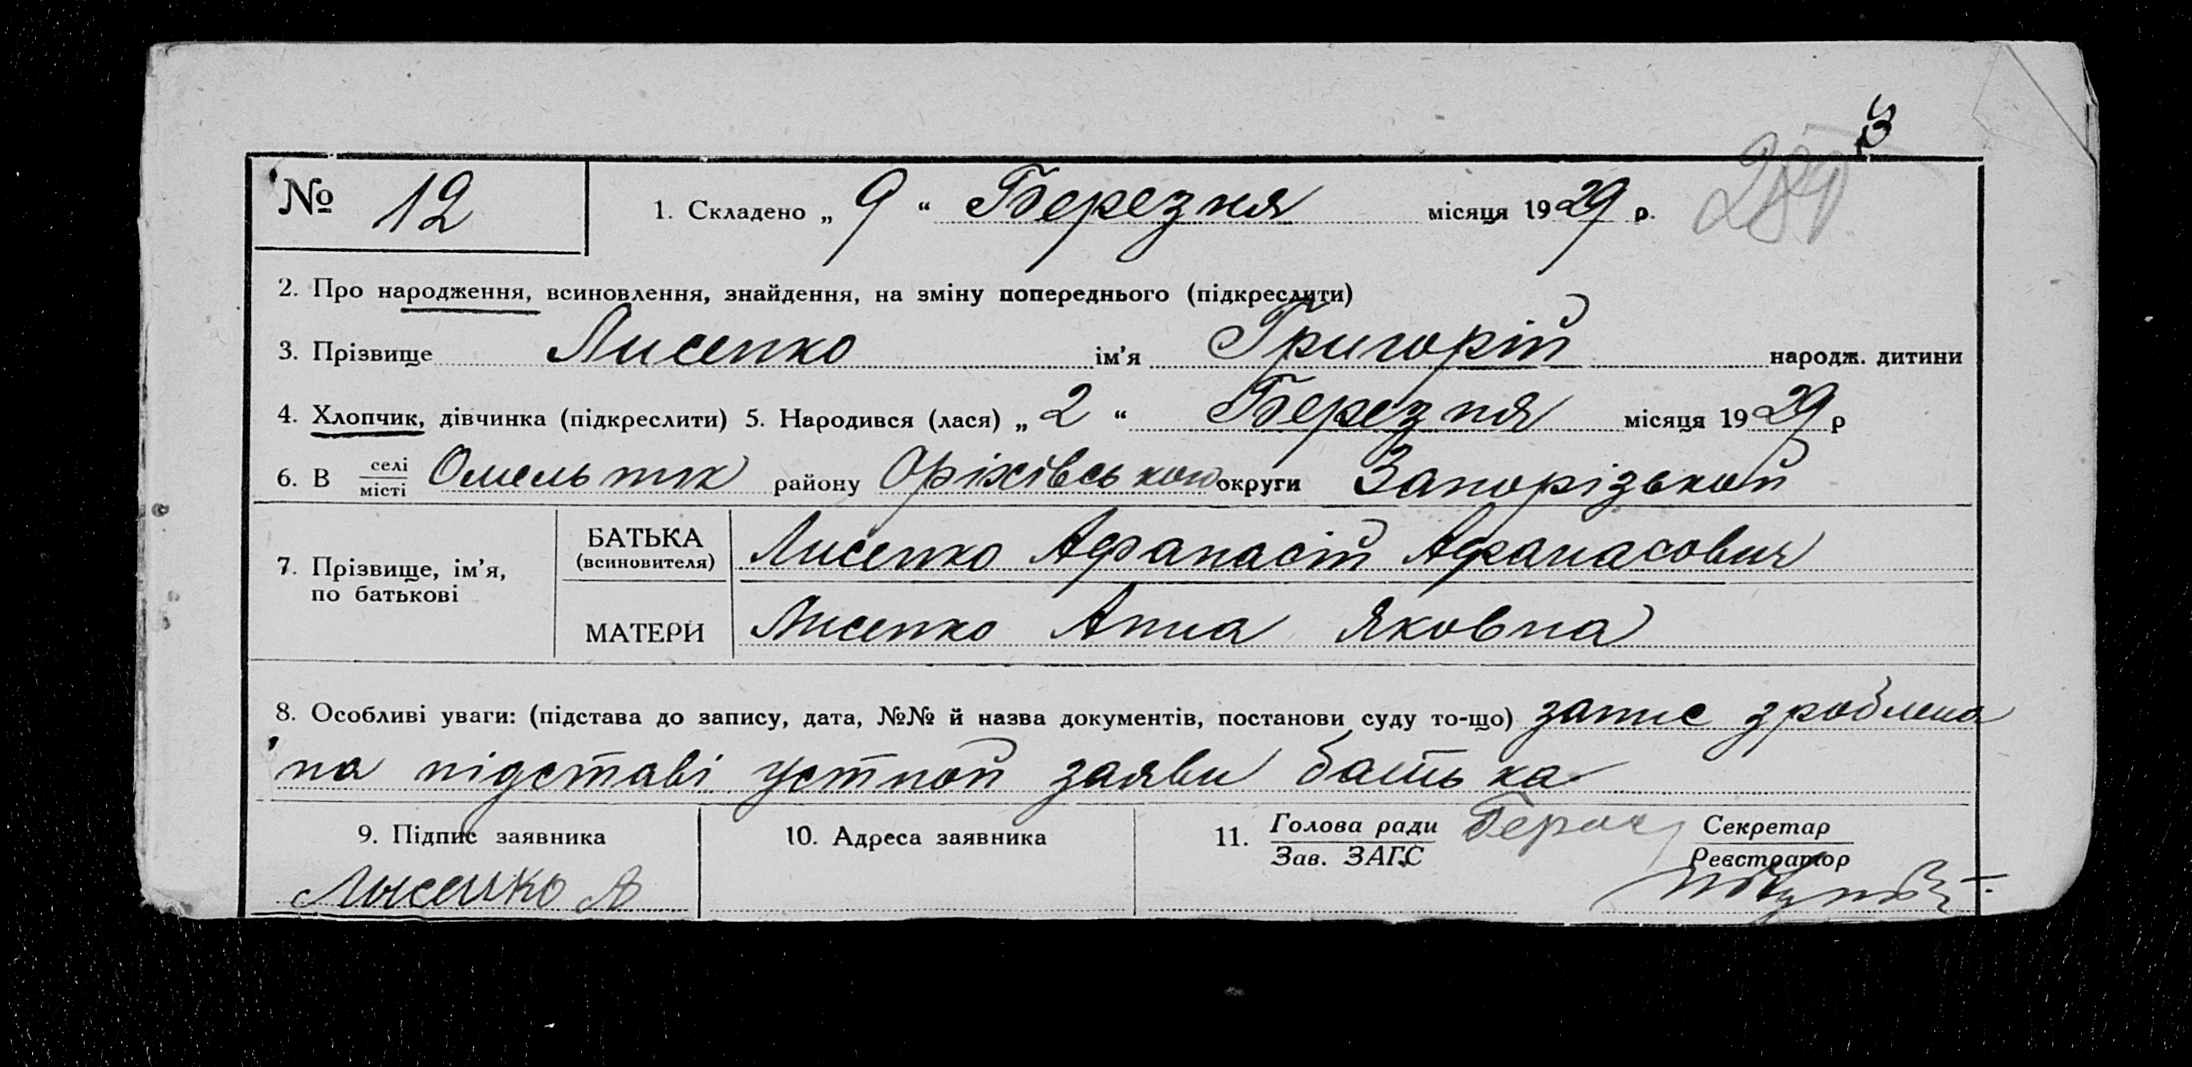 3
№ 12 1. Складено „ 9 “ Березня місяця 1929 р.
2. Про народження, всиновлення, знайдення, на зміну попереднього (підкреслити)
3. Прізвище Лисенко ім’я Григорій народж. дитини
4. Хлопчик, дівчинка (підкреслити) 5. Народився (лася) „ 2 “ Березня місяця 1929 р
6. В селі Омельник району Оріхівської округи Запорізькой
місті
БАТЬКА Лисенко Афанасій Афанасович
(всиновителя)
7. Прізвище, ім’я,
по батькові
МАТЕРИ Лисенко Анна Яковна
8. Особливі уваги: (підстава до запису, дата, №№ й назва документів, постанови суду то-що) запис зроблено
на підставі устной заяви батька
9. Підпис заявника 10. Адреса заявника 11. Голова ради Секретар
Зав. ЗАГС Реєстратор
Лысенко А